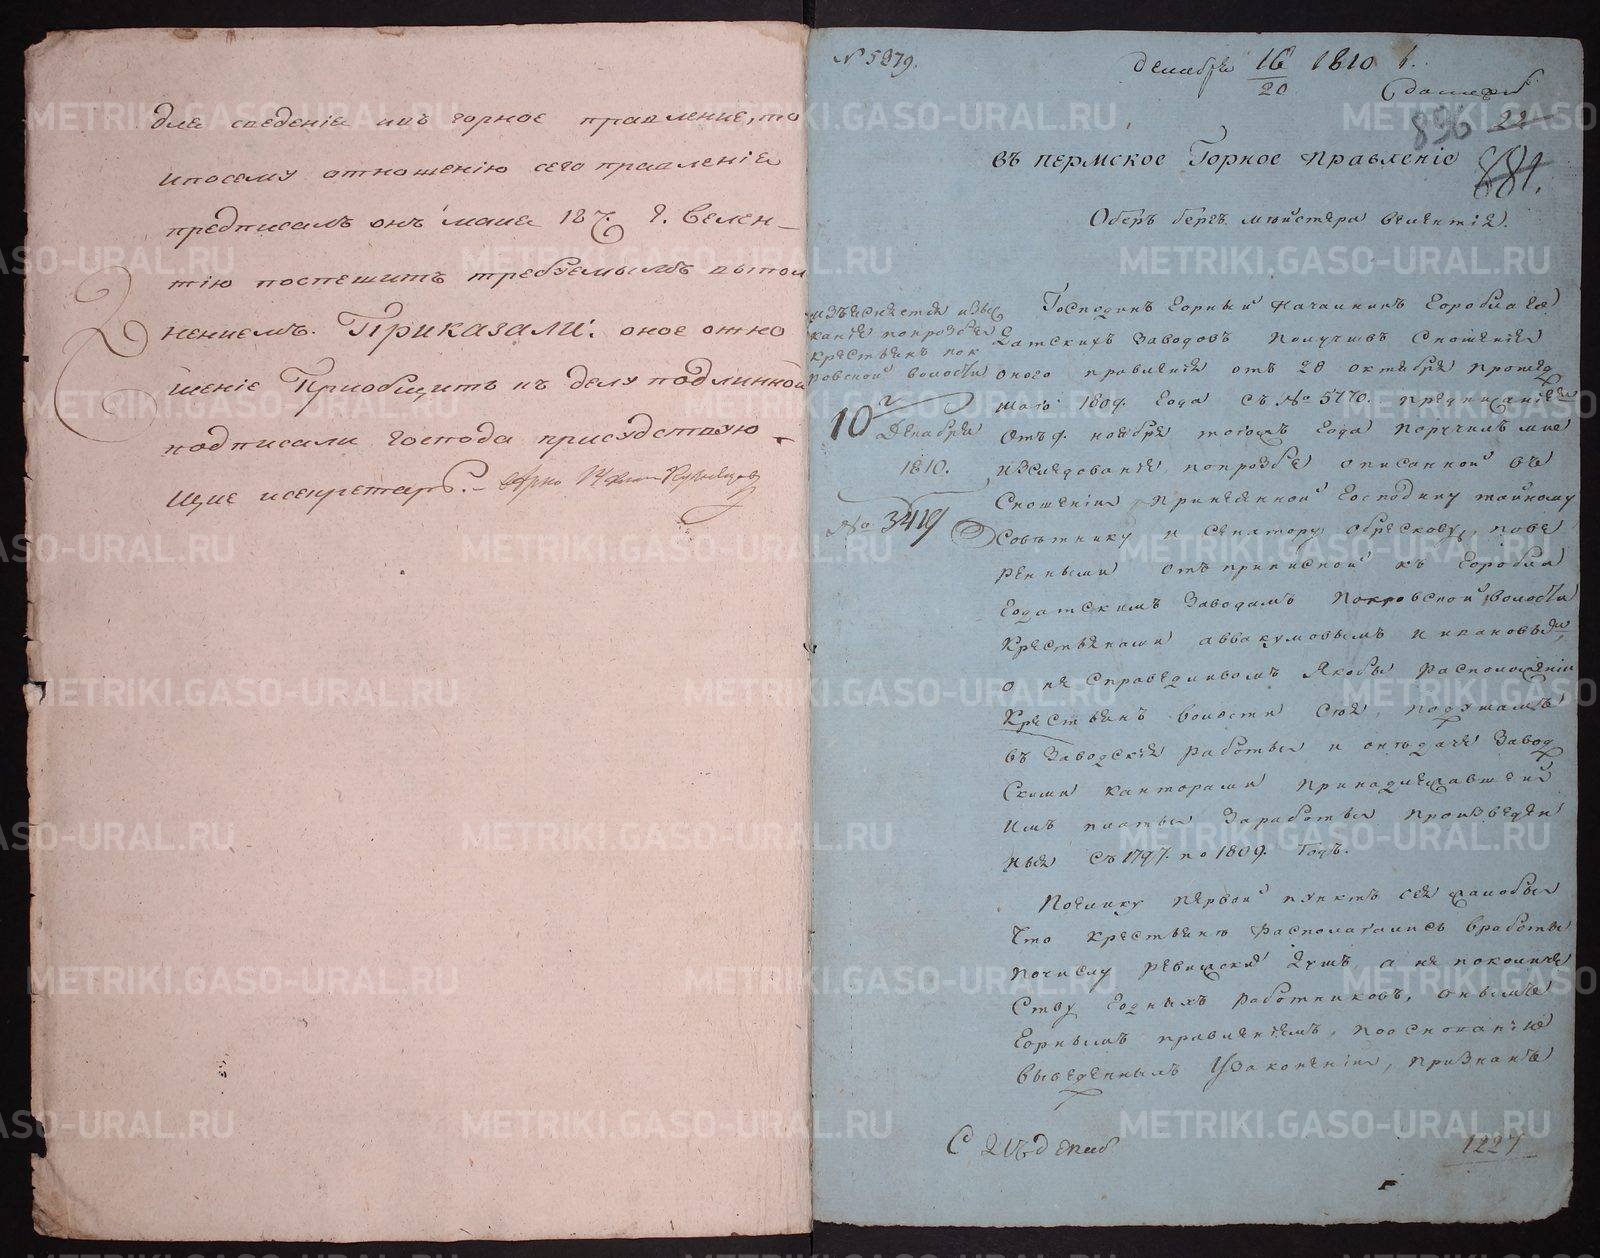 для сведенія изъ горное правленіе, то
и посему отношенію сего правленія
предписалъ онъ маия 187. Велен-
тію поспешить требуемымъ выпол
неніемъ. Приказали: оное отно
шеніе Приобщить къ делу подлинной
подписали господа присудствую-
щие и секретарь.
N 5279.
декабря 16/20 1810
896 22
881.
въ Пермское Горное Правленіе
Оберъ бергъ мейстера велентія.
кания по прозбѣ
крестьянъ пок
ровской волости
10 декабря
1810.
No 3419
Господинъ Горный Начальникъ Гороблаго
датскихъ Заводовъ Получивъ Сношеніе
оного правленія отъ 28 октября прошед
шаго 1809. Года съ No 5170. предписаніем
отъ 9. ноября тогожъ Года Поручилъ мне
изследованіе, по прозбе описанной въ
Сношеніи, Принесенной Господину тайному
Совѣтнику и Сенатору Обрескову, пове
ренными отъ приписной къ Горобла
годатскимъ Заводамъ Покровской волости
Крестьянами аввакумовымъ и ивановым
о не справедливомъ Якобы расположеніи
Крестьянъ волости Сей, по душамъ
въ Заводскія работы и о недаче Завод
скими канторами Принадлежавшей
имъ платы За работы произведен
ныя Съ 1797. по 1809. Годъ.
Поелику первой пунктъ сей жалобы
Что Крестьяне располагались в работы
по числу ревизскихъ душъ а не по количе
ству годныхъ работниковъ, онымъ
Горнымъ правленіемъ, по основанію
выведенныхъ Узаконеніи, признанъ
1227